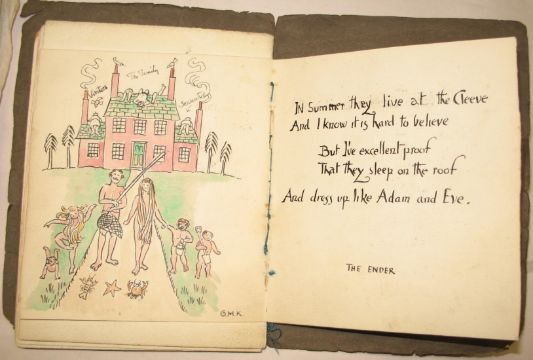 The Family
Visitors
G.M.K
IN Summer they live at the Cleeve
And I know it is hard to believe
But I've excellent proof
That they sleep on the roof
And dress up like Adam and Eve.
THE ENDER